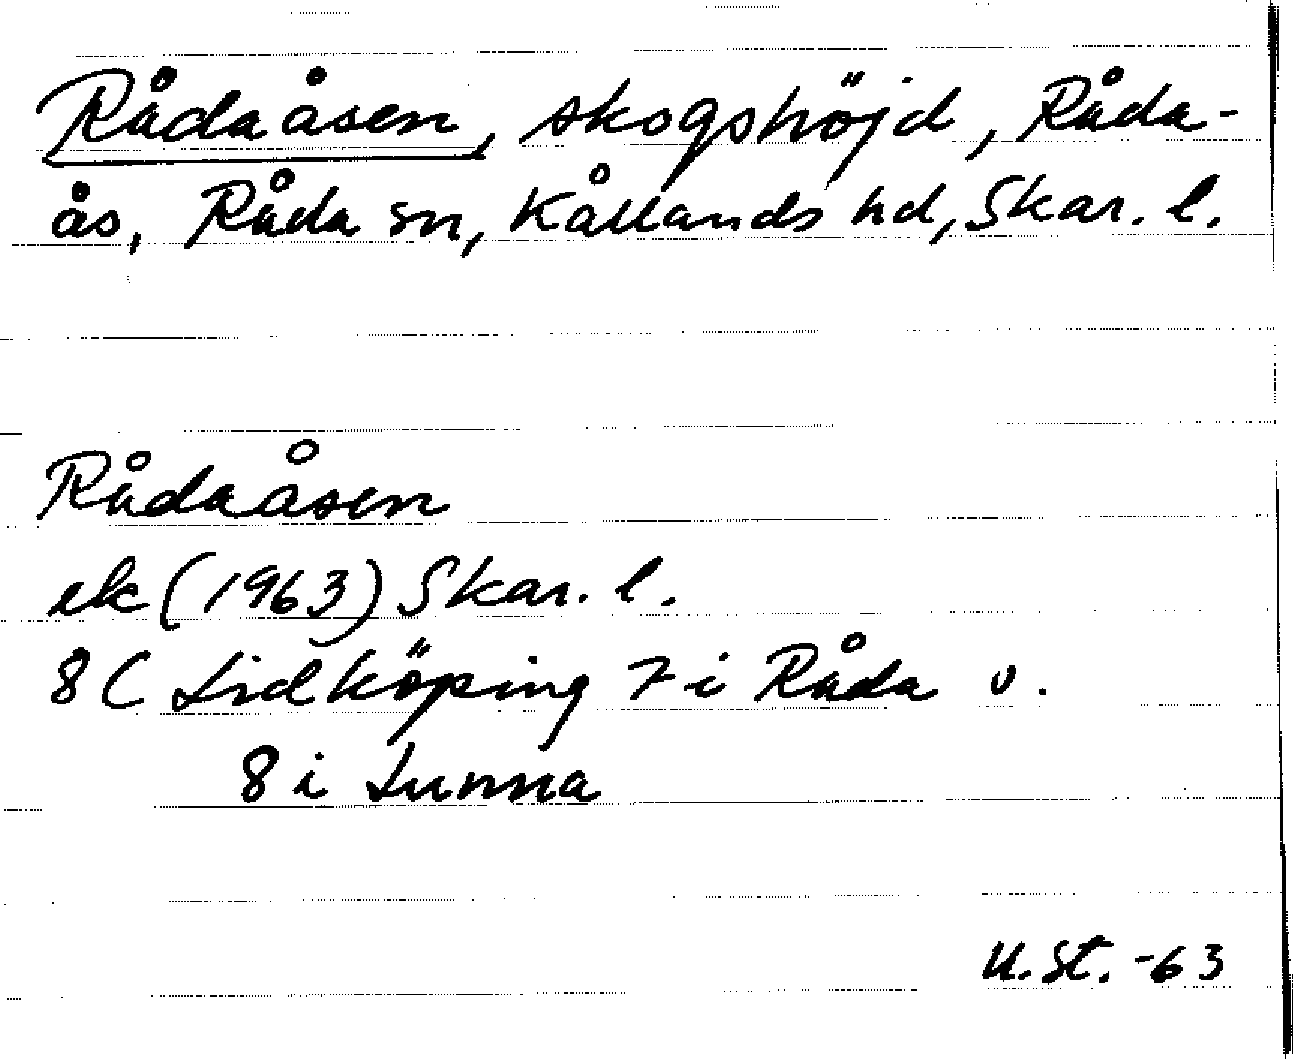 Rådaåsen, skogshöjd, Råda-
ås, Råda sn, Kållands hd, Skar. l.
Rådaåsen
ek (1963) Skar. l.
8 C Lidköping 7 i Råda o.
8 i Lunna
U.St. -63